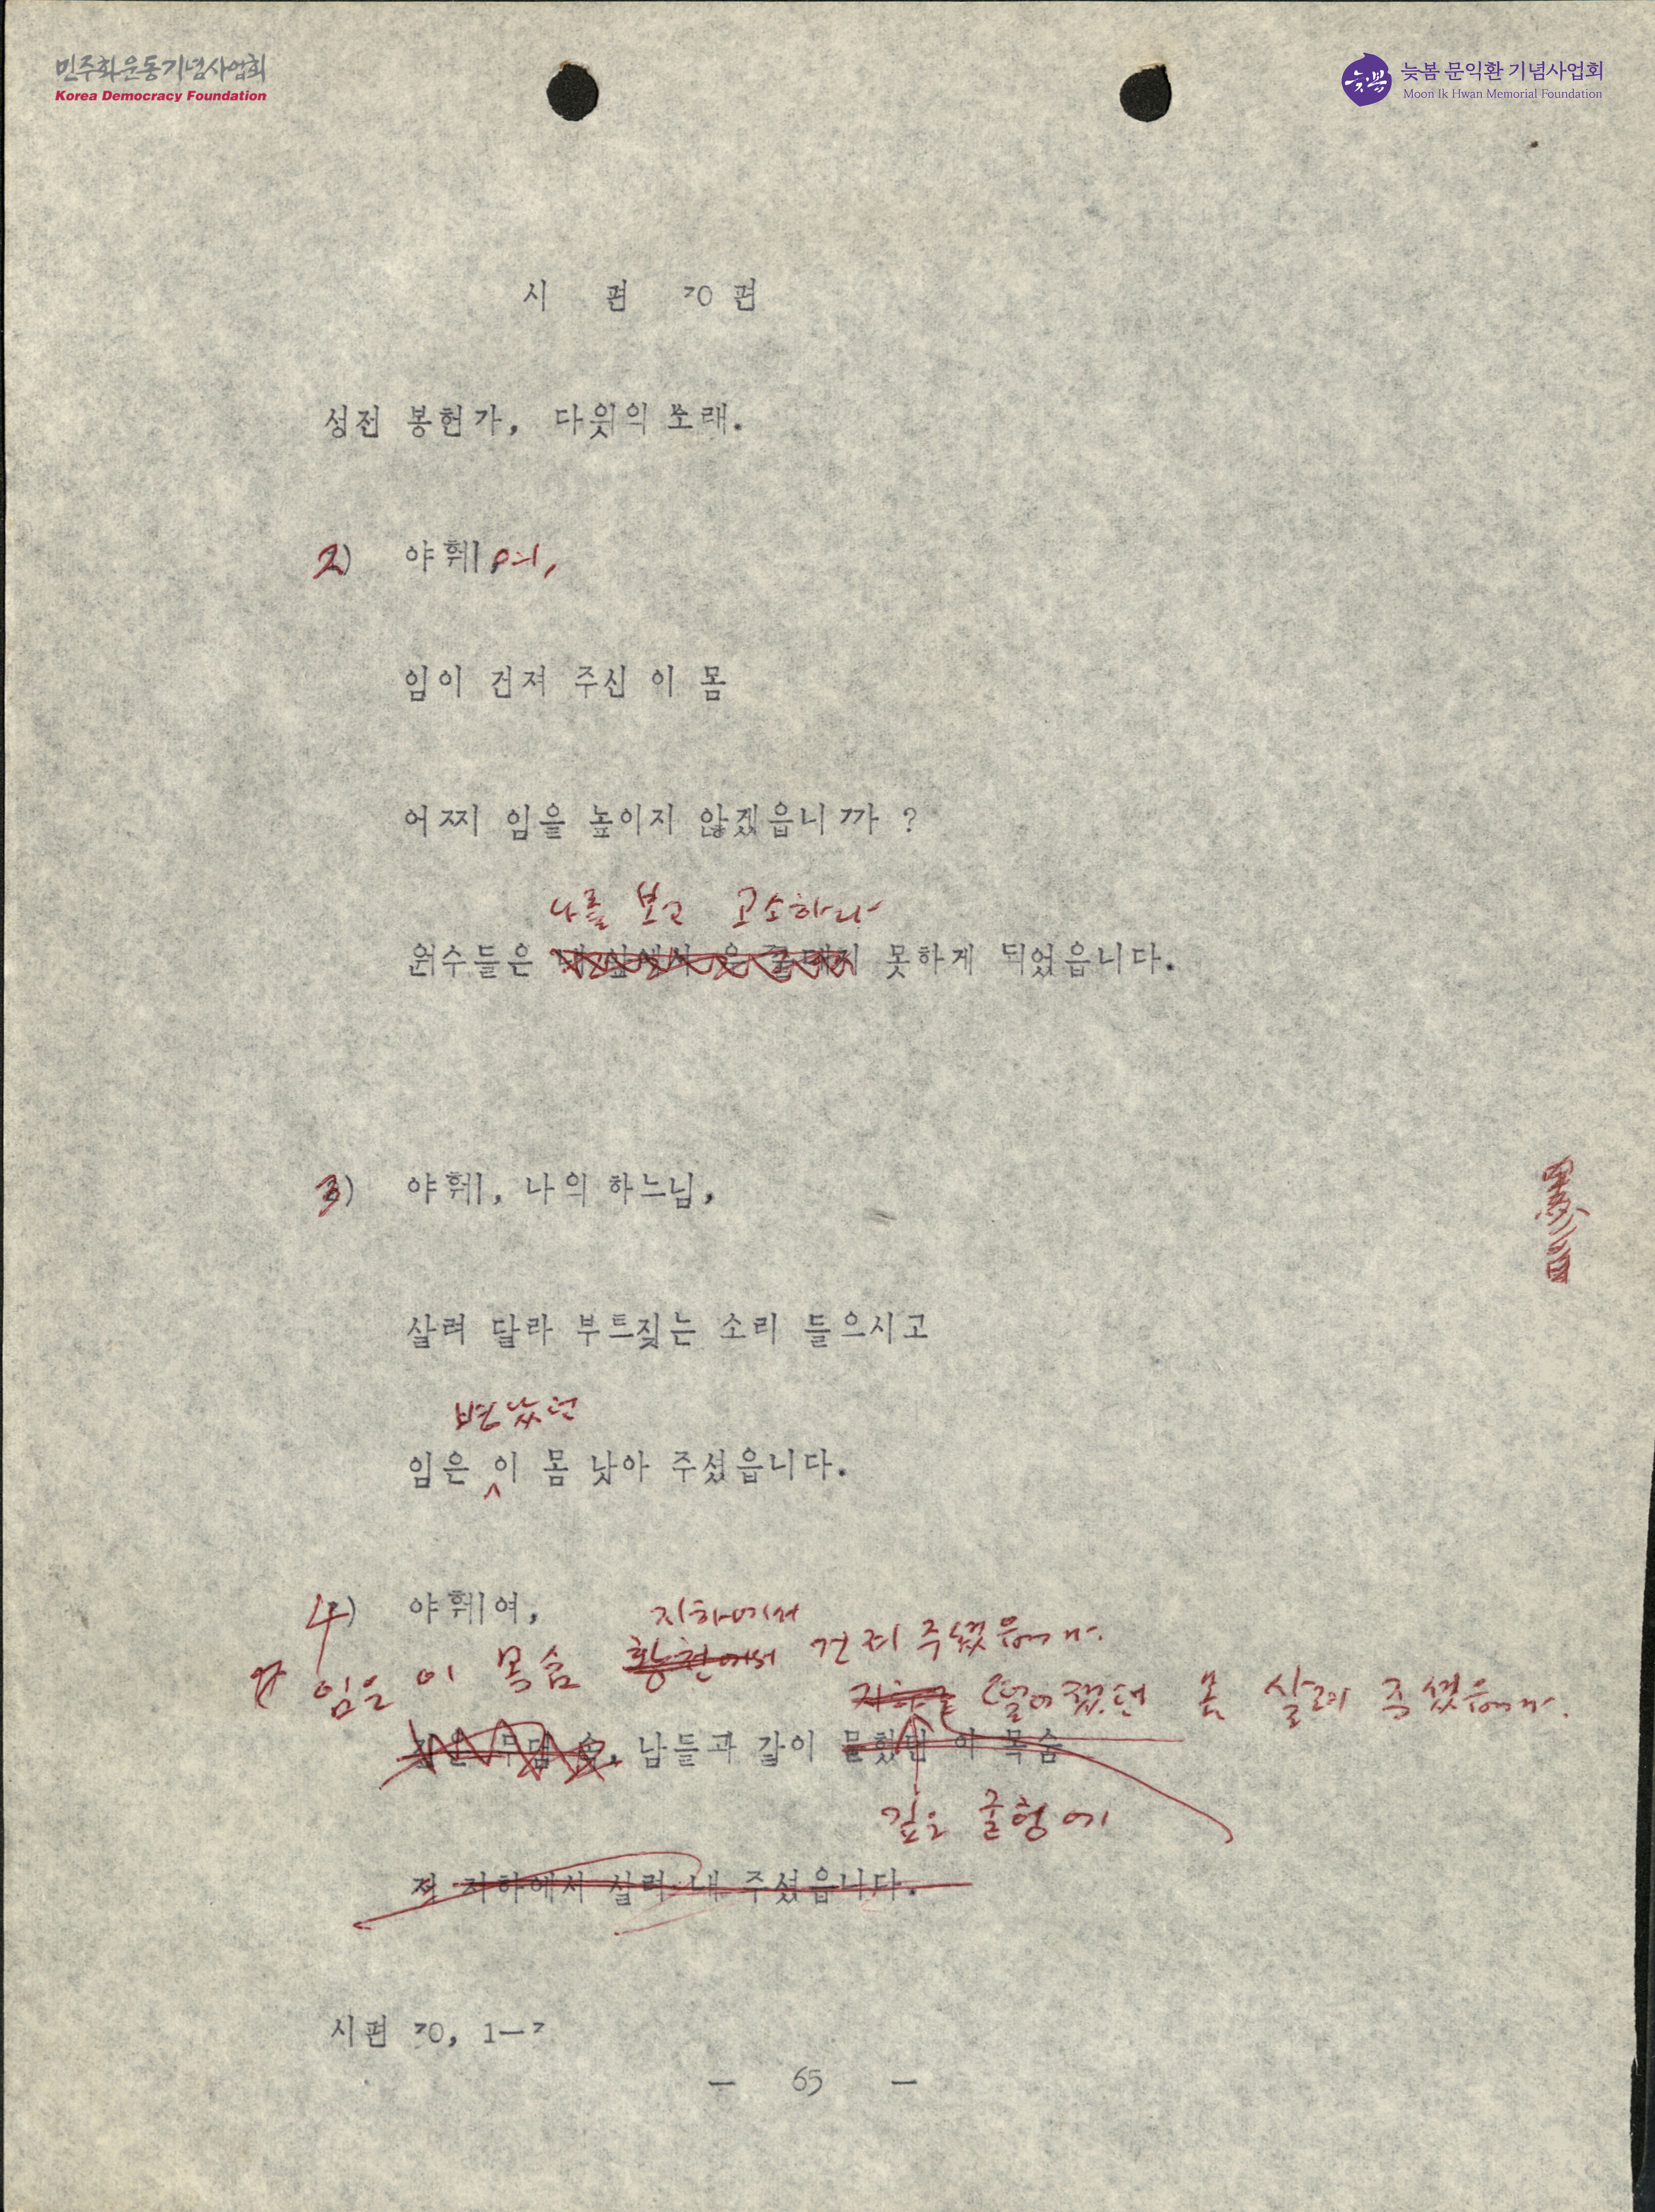 민주화운동기념사업회
Korea Democracy Foundation
늦봄
늦봄 문익환 기념사업회
Moon Ik Hwan Memorial Foundation
시 편 30 편
성전 봉헌가, 다윗의 노래.
2) 야훼여,
임이 건져 주신 이 몸
어찌 임을 높이지 않겠읍니까 ?
나를 보고 고소하다
원수들은 못하게 되었읍니다.
3) 야훼, 나의 하느님,
살려 달라 부르짖는 소리 들으시고
병났던
임은 이 몸 낫아 주셨읍니다.
4) 야훼여,
지하에서
임은 이 목숨 황천에서 건져 주셨읍니다.
떨어졌던 몸 살려 주셨읍니다.
깊은 무덤 속, 남들과 같이 묻혔던 이 목숨
깊은 굴헝에
저 지하에서 살려 내 주셨읍니다.
시편 30, 1—3
— 65 —